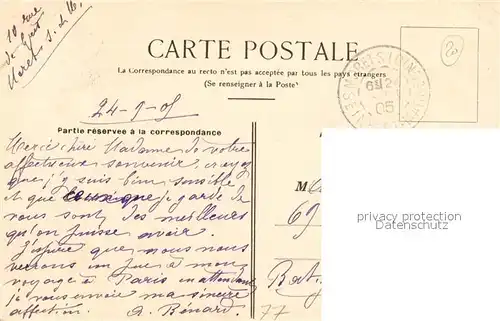 10 rue
de
CARTE POSTALE
La Correspondance au recto n'est pas acceptée par tous les pays étrangers
(Se renseigner à la Poste)
24-9-05
Partie réservée à la correspondance
Merci chère Madame de votre
affectueux souvenir, croyez
que j'y suis bien sensible
et que je garde de
vous sont des meilleurs
qu'on puisse avoir.
J'espère que nous nous
verrons un peu à mon
voyage à Paris en attendant
je vous envoie ma sincère
affection.
A. Bénard
M
69
Bat
77
privacy protection
Datenschutz